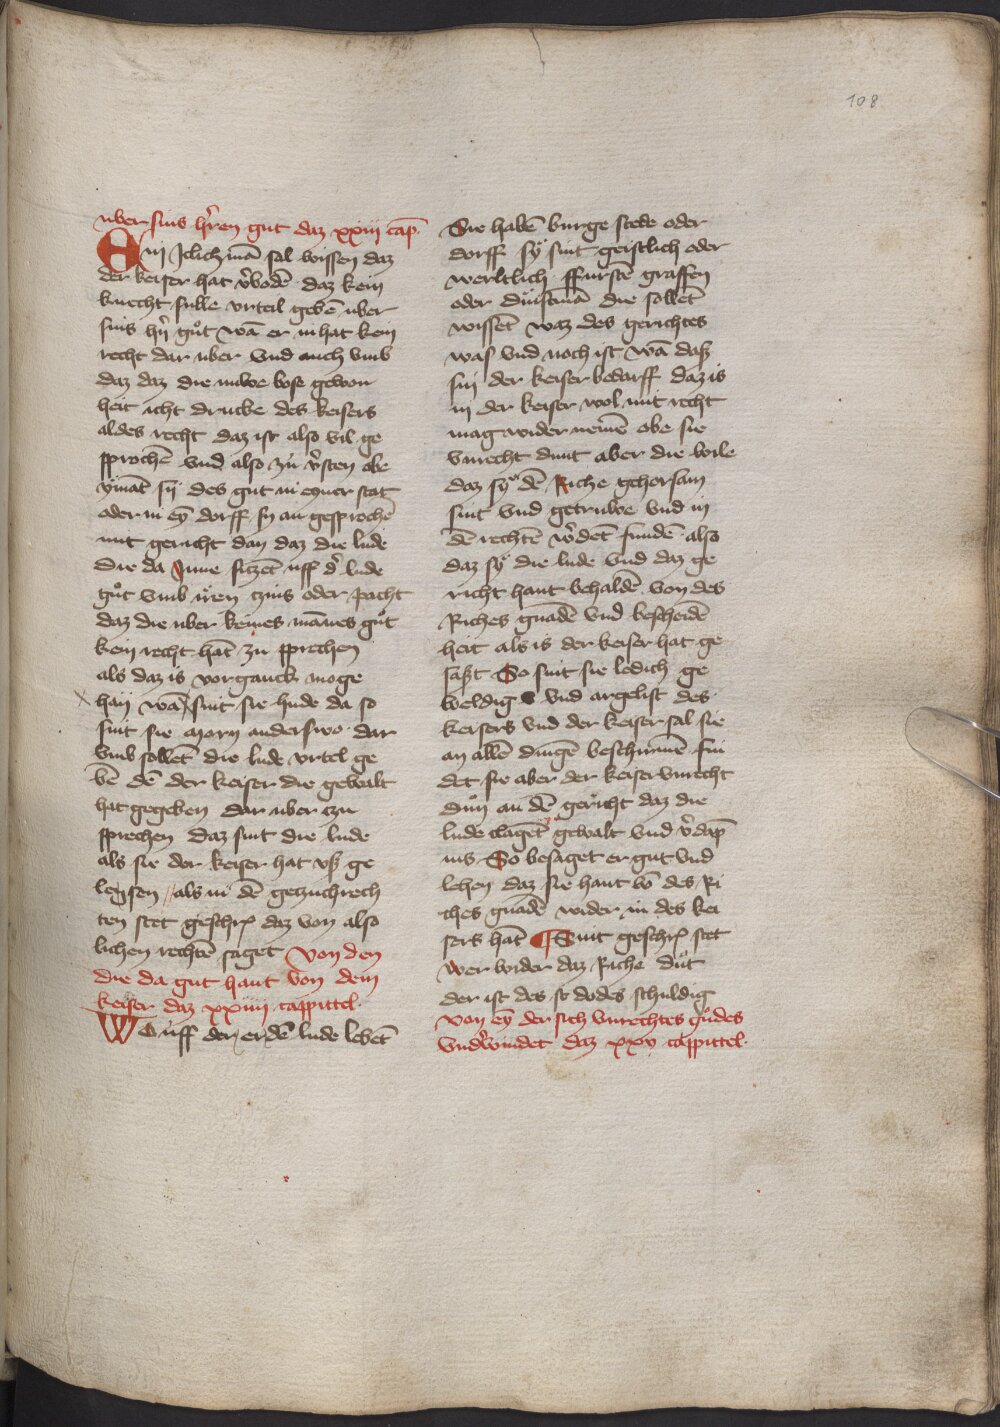 108
uber sins hr̄en gut daz xxiij cap̄
Ein Iclich mā sal wissen daz
der keiser hat v̄bodē daz kein
knecht sulle urteil gebē uber
sins hr̄n gůt wā er in hat kein
recht dar uber Vnd auch vmb
daz daz die nuwe bose gewon
heit icht drucke des keisers
aldes recht daz ist also vil ge
sprochē vnd also zů v̄sten obe
ymāt sy des gut in eyner stat
oder in eȳ dorff sy an gesprochē
mit gericht dan daz die lude
die da Inne sitzēt uff d' lude
gůt vmb iren czins oder pacht
daz die uber keines mānes gůt
kein recht hāt zu sprechen
als daz is vorganck moge
han wā sint sie hude da so
sint sie morn anderswo dar
vmb sollēt die lude urtel ge
bē dē der keiser die gewalt
hat gegeben dar uber czu
sprechen daz sint die lude
als sie der keiser hat vß ge
lensen als in dē getzuchrech
ten stet geschr̄ daz von also
lichen rechtē saget Von den
die da gut hant von dem
keiser daz xxiiij cappittel
WO uff der erdē lude lebēt
Sie habē burge stede oder
dorff sy sint geistlich oder
werltlich ffurstē graffen
oder dinstmā die sollēt
wissēt waz des gerichtes
was vnd noch ist wā daß
sin der keiser bedarff daz is
in der keiser wol mit recht
mag wider nemē obe sie
vnrecht dunt aber die wile
daz sy dē Riche gehorsam
sint vnd getruwe vnd in
dē rechtē w'dēt fundē also
daz sy die lude vnd daz ge
richt hant behaldē von des
Riches gnadē vnd bescheidē
heit als is der keiser hat ge
saßt So sint sie ledich ge
weldig vnd argelist des
keisers vnd der keiser sal sie
an allē dingē beschirmē fin
det sie aber der keiser vnrecht
důn an dē gericht daz die
lude clagēt gewalt vnd v̄dāp
nis So besaget er gut vnd
lehen daz sie hant vō des Ri
ches gnadē wider in des kei
sers hāt ¶ Suit geschr̄ stet
wer wider daz Riche důt
der ist des sr dodes schuldig
Von eȳ der sich vnrechtes gůdes
vnd'windet daz xxv cappittel